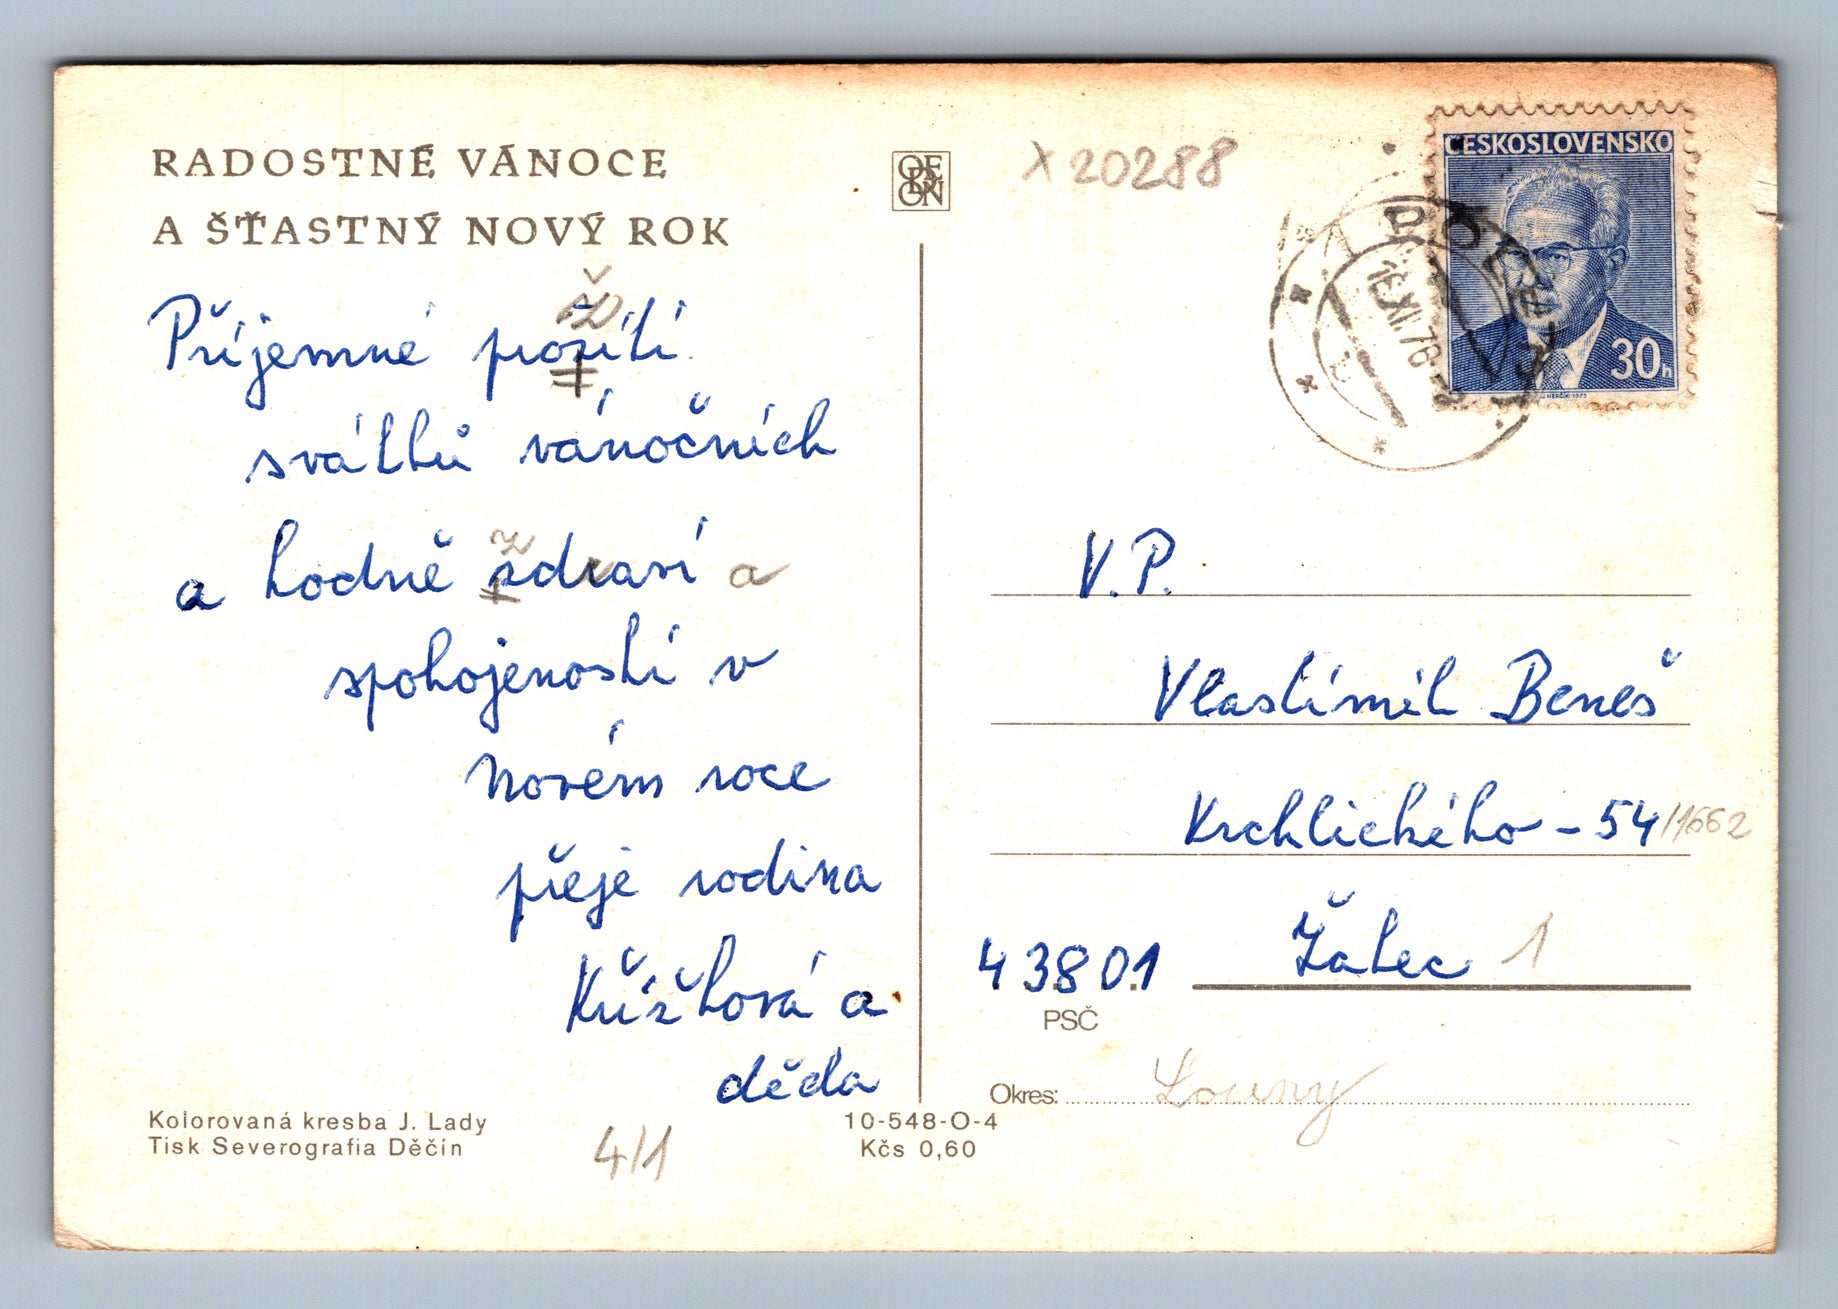 RADOSTNÉ VÁNOCE
A ŠŤASTNÝ NOVÝ ROK
Příjemné prožití
svátků vánočních
a hodně zdraví a
spokojenosti v
Novém roce
přeje rodina
Křížková a
děda
Kolorovaná kresba J. Lady
Tisk Severografia Děčín
4/1
10-548-O-4
Kčs 0,60
ODEON
X 20288
ČESKOSLOVENSKO
30h
V. P.
Vlastimil Beneš
Vrchlického - 54/1662
43801 Žatec 1
PSČ
Okres: Louny